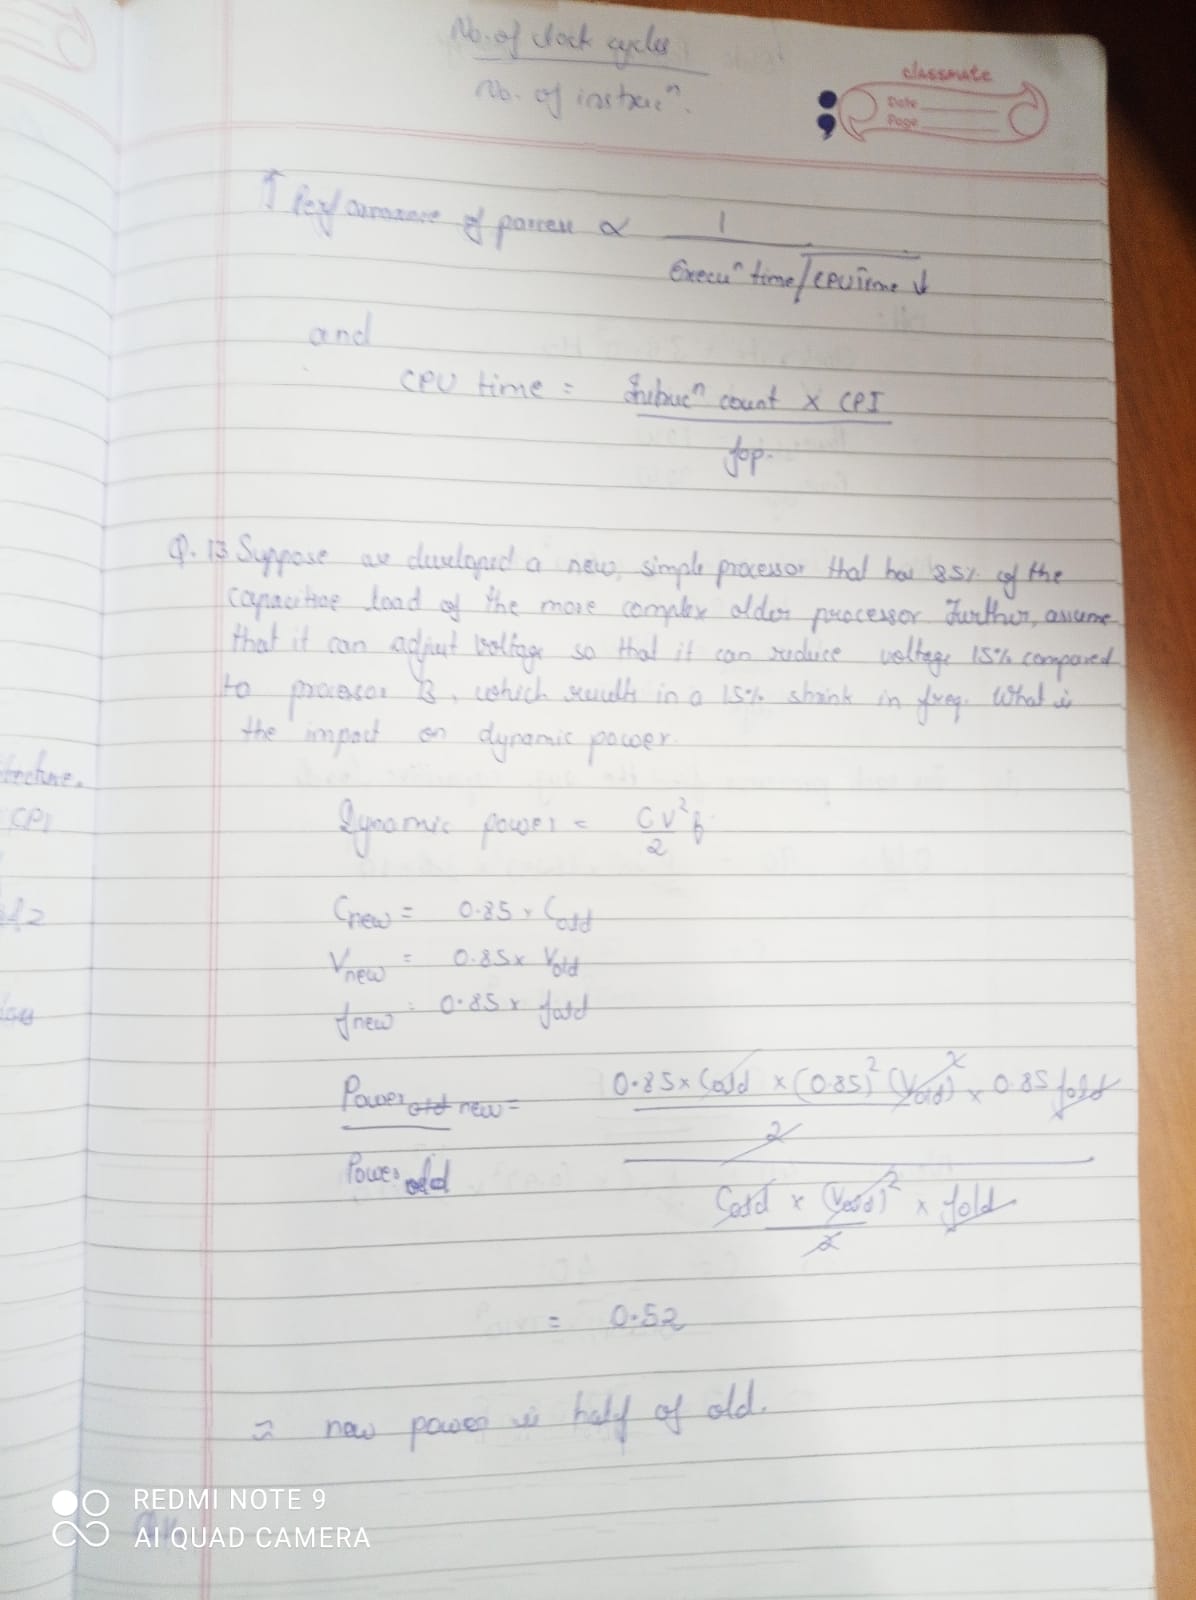 No. of clock cycles
No. of instrucⁿ.
classmate
Date
Page
↑ Performance of process ∝ 1
Execuⁿ time/CPU time ↓
and
CPU time = Instrucⁿ count × CPI
fop.
Q.13 Suppose we developed a new, simple processor that has 85% of the
capacitive load of the more complex older processor. Further, assume
that it can adjust voltage so that it can reduce voltage 15% compared
to processor B, which results in a 15% shrink in freq. What is
the impact on dynamic power.
tecture.
CPI
Dynamic power = CV²f
2
Cnew = 0.85 × Cold
Vnew = 0.85 × Vold
fnew = 0.85 × fold
Power old new = 0.85 × Cold × (0.85)² (Vold)² × 0.85 fold
2
Power old
Cold × (Vold)² × fold
2
= 0.52
≈ new power is half of old.
REDMI NOTE 9
AI QUAD CAMERA